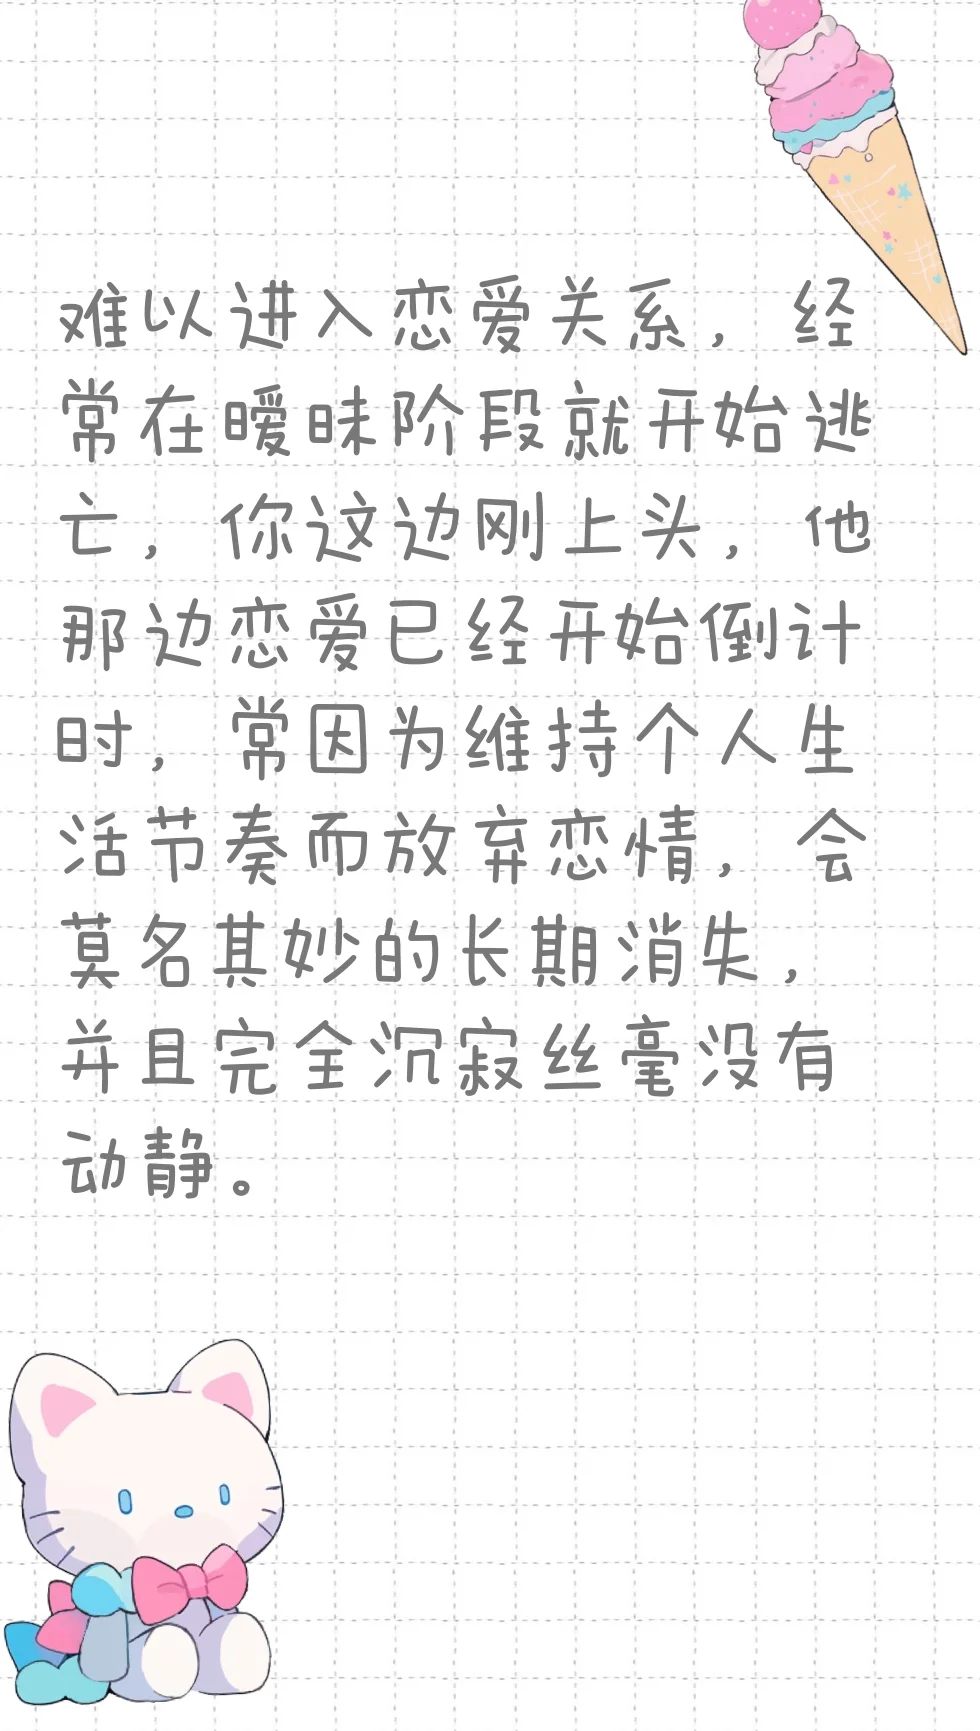 难以进入恋爱关系，经
常在暧昧阶段就开始逃
亡，你这边刚上头，他
那边恋爱已经开始倒计
时，常因为维持个人生
活节奏而放弃恋情，会
莫名其妙的长期消失，
并且完全沉寂丝毫没有
动静。